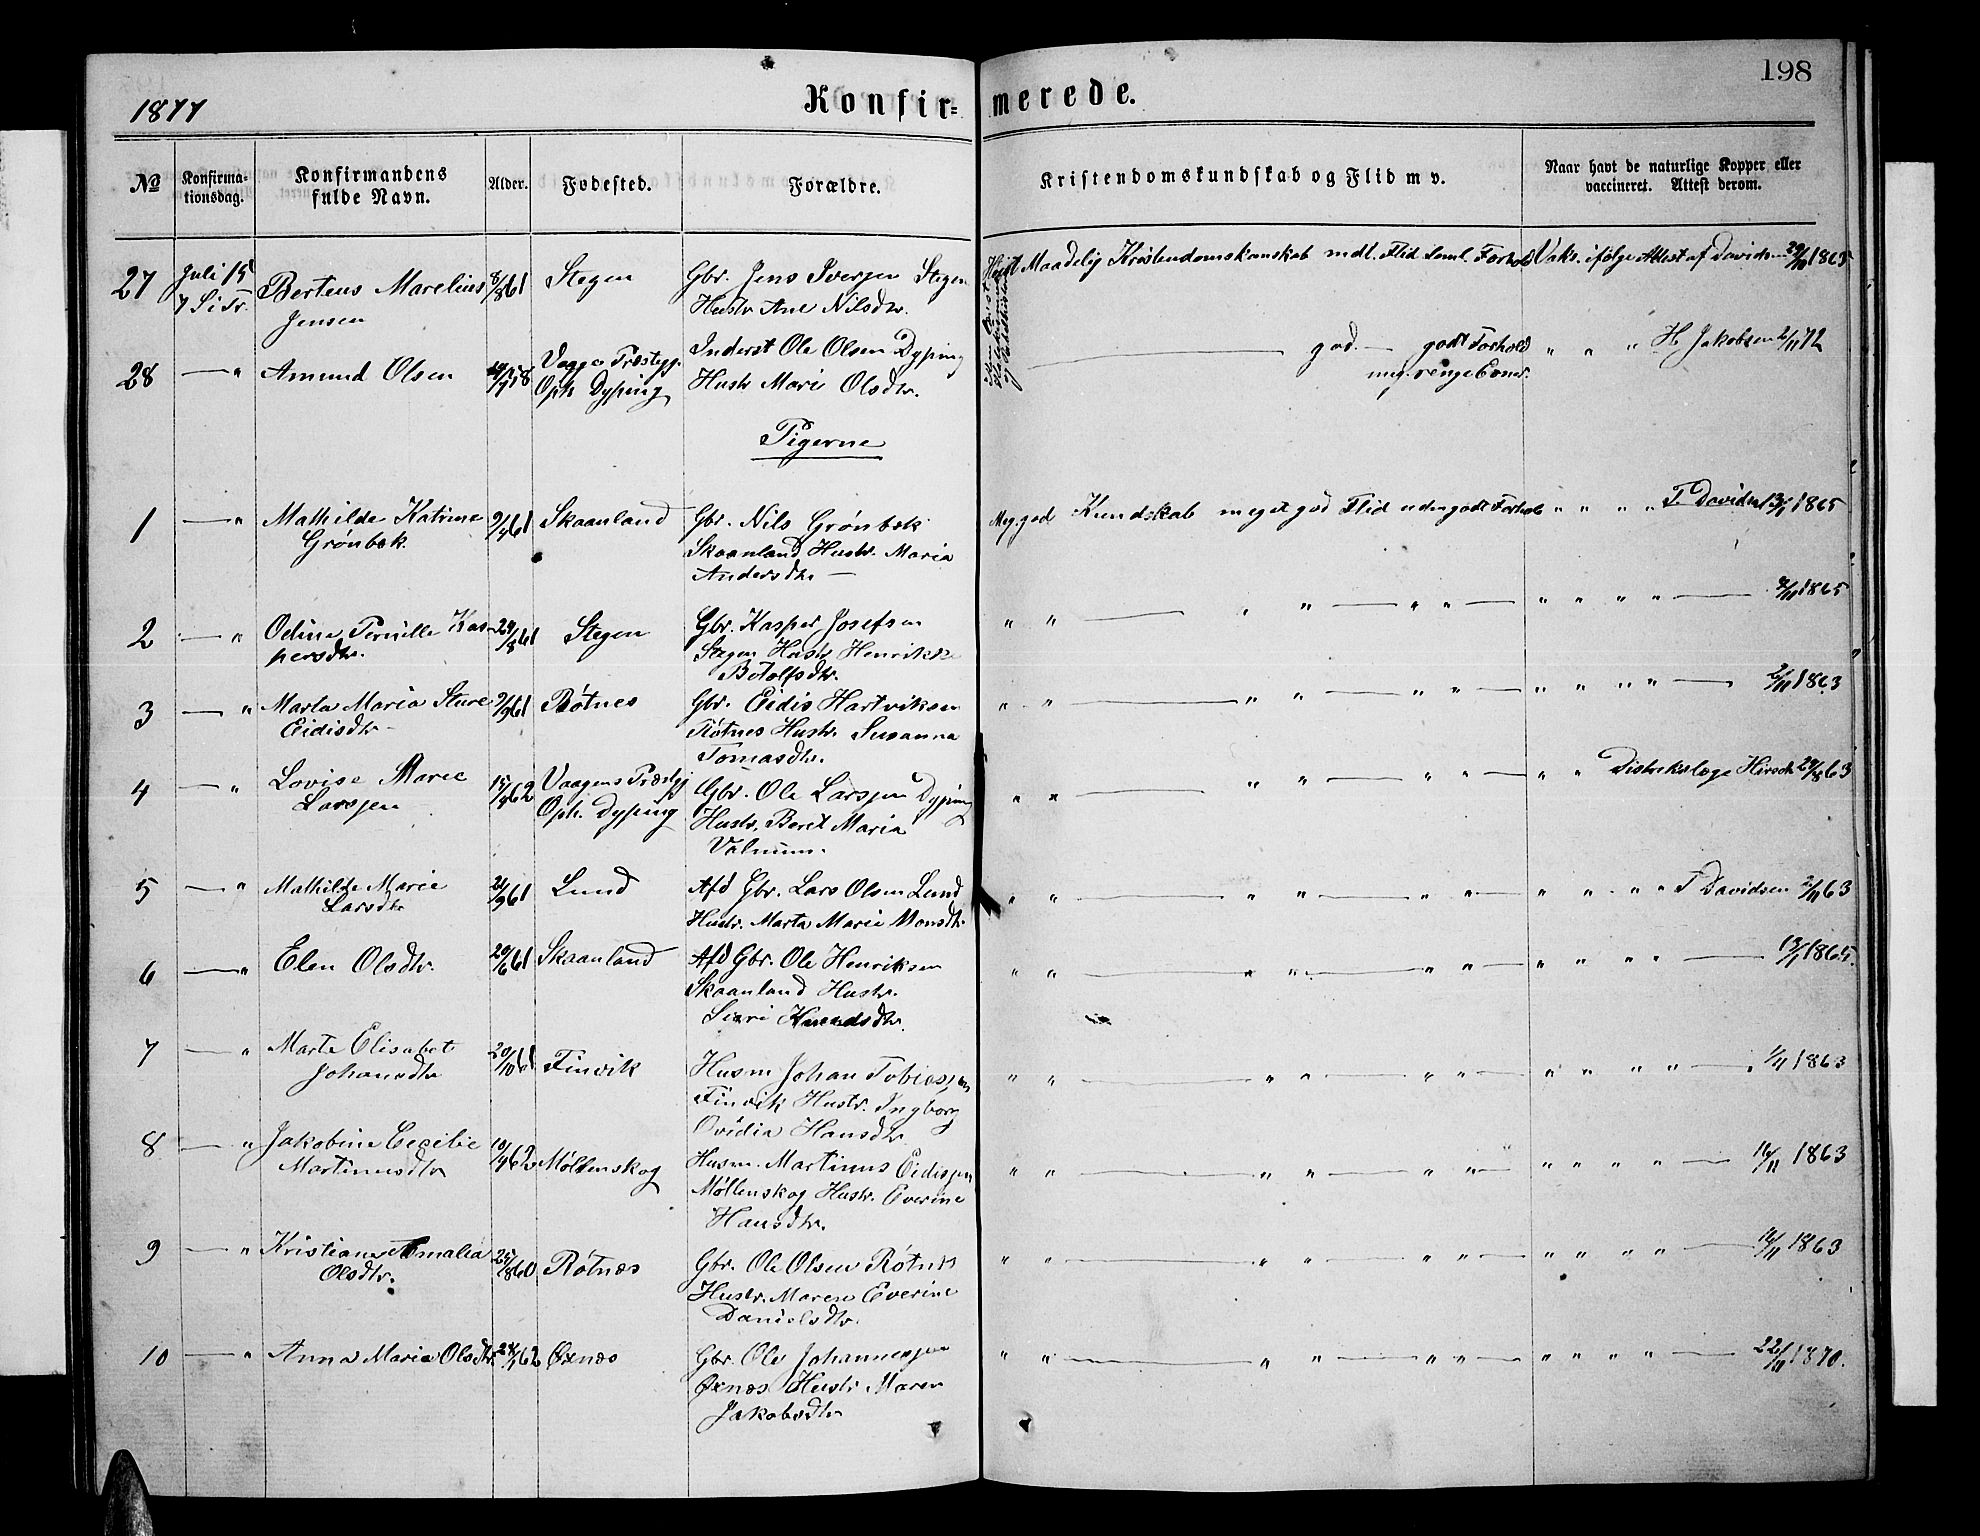 198
1877
Konfir=merede.
№
Konfirma-
tionsdag.
Konfirmandens
fulde Navn.
Alder.
Fødested.
Forældre.
Kristendomskundskab og Flid m v.
Naar havt de naturlige Kopper eller
vaccineret. Attest derom.
27 Juli 15 Berteus Marelius 8/8 61 Stegen Gbr. Jens Iversen Stegen Maadelig Kristendomskunskab mdl. Flid saml. Forhold Vaks. ifølge Attest af Davidsen 1865
7 S i Tr. Jensen Hustr Ane Nilsdtr.
28 — " Amund Olsen Vaage Præstegj. Inderst Ole Olsen Dyping — god — godt Forhold " " " H Jakobsen 2/11 72
Oph Dyping Hustr Mari Olsdtr. meg. ringe Evner.
Pigerne
1 — " Mathilde Katrine 9/4 61 Skaanland Gbr. Nils Grønbek Meg. god Kundskab meget god Flid udm godt Forhold " " " " T. Davidsen 13/1 1865
Grønbek. Skaanland Hustr. Maria
Andersdtr —
2 — " Odine Pernille Kas- 29/8 61 Stegen Gbr. Kasper Josefsen " " — " " — " " — " " " " — 1865
persdtr. Stegen Hustr Henrikke
Botolfsdtr.
3 — " Marta Maria Sture 9/9 61 Røtnes Gbr. Eidis Hartviksen " " — " " — " " — " " " " — 2/11 1863
Eidisdtr — Røtnes Hustr. Susanna
Tomasdtr.
4 — " Lovise Marie 15/4 62 Vaagens Præstgj Gbr. Ole Larsen Dyping " " — " " — " " — " " Distriktslæge Hirsch 29/8 63
Larsen Oph. Dyping Hustr. Berit Maria
Valnum.
5 — " Mathilde Marie 21/9 61 Lund Afd Gbr. Lars Olsen Lund " " — " " — " " — " " " " T Davidsen 2/11 63
Larsdtr Hustr. Marta Marie Monsdtr.
6 — " Elen Olsdtr. 20/6 61 Skaanland Afd Gbr. Ole Henriksen " " — " " — " " — " " " " — 13/1 1865.
Skaanland Hustr.
Siari
7 — " Marte Elisabet 20/10 61 Finvik Husm Johan Tobiassen " " — " " — " " — " " " " — 1/11 1863
Johansdtr Finvik Hustr. Ingborg
Ovidia Hansdtr
8 — " Jakobine Cecilie 10/4 62 Møllenskog Husm. Martinus Eidissen " " — " " — " " — " " " " — 16/11 1863
Martinusdtr Møllenskog Hustr. Everine
Hansdtr.
9 — " Kristiane Amalia 25/8 60 Røtnæs Gbr. Ole Olsen Røtnes " " — " " — " " — " " " " — 16/11 1863
Olsdtr. Hustr. Maren Everine
Danielsdtr
10 — " Anna Maria Olsdtr 28/1 62 Øxnæs Gbr. Ole Johannessen " " — " " — " " — " " " " — 22/11 1870.
Øxnæs Hustr Maren
Jakobsdtr